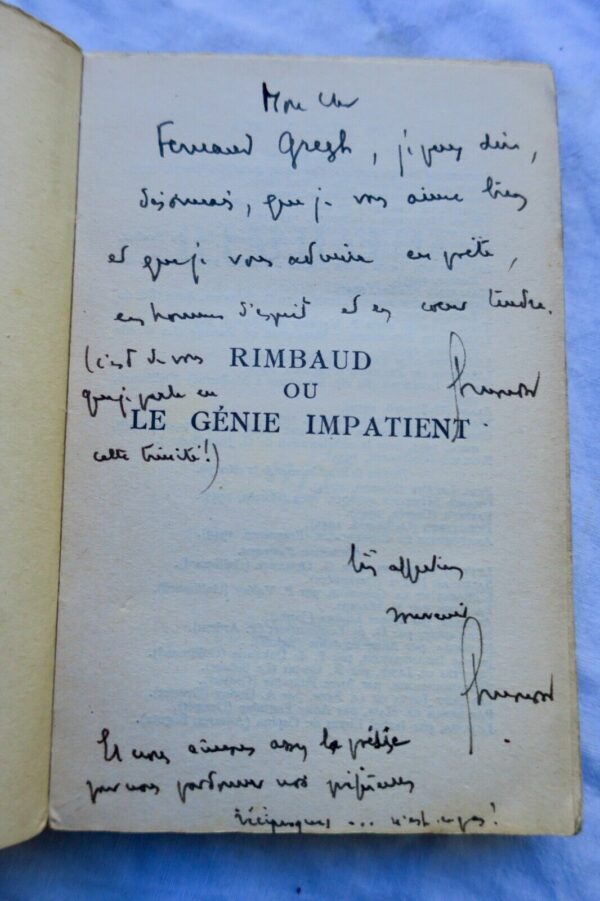 Mon cher
Fernand Gregh, je peux dire,
désormais, que je vous aime bien
et que je vous admire en poète,
en homme d'esprit et en cœur tendre.
(c'est de vous
que je parle en
cette trinité!)
RIMBAUD
OU
LE GÉNIE IMPATIENT
très affectueux
Et nous aimons assez la poésie
pour nous pardonner nos préfaces
réciproques ... n'est-ce pas!